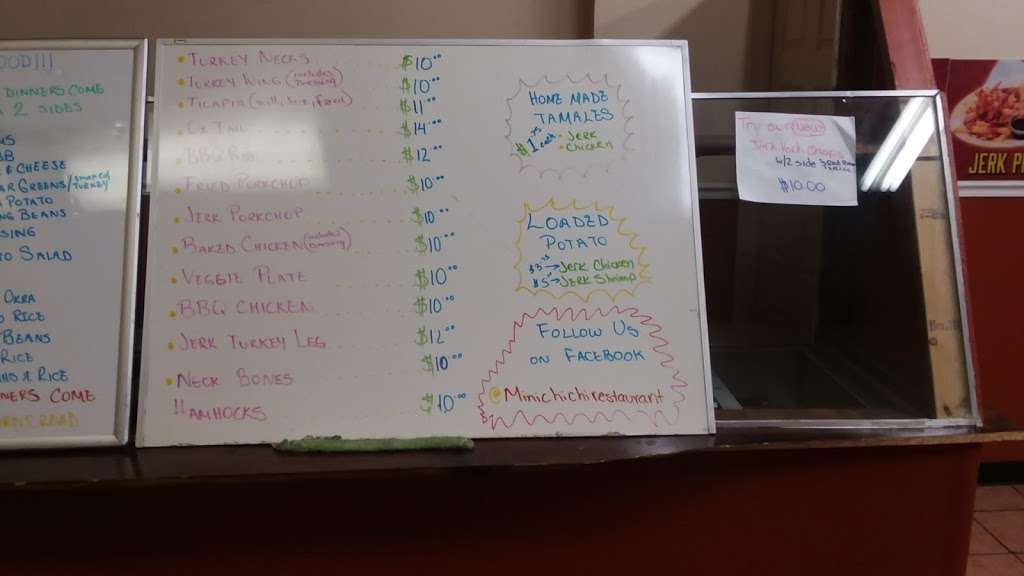 OOD!!!
DINNERS COME
2 SIDES
& CHEESE
GREENS/SMOKED TURKEY
POTATO
BEANS
SALAD
OKRA
RICE
BEANS
RICE
& RICE
NERS COME
TURKEY NECKS $10.00
TURKEY WING (includes Dressing) $10.00
TILAPIA $11.00
OX TAIL $14.00
BBQ RIB $12.00
FRIED PORKCHOP $10.00
JERK PORKCHOP $10.00
BAKED CHICKEN (includes Dressing) $10.00
VEGGIE PLATE $10.00
BBQ CHICKEN $10.00
JERK TURKEY LEG $12.00
NECK BONES $10.00
HAMHOCKS $10.00
HOME MADE
TAMALES
$1.75 each
• JERK
• CHICKEN
LOADED
POTATO
→ JERK CHICKEN
→ JERK SHRIMP
FOLLOW US
ON FACEBOOK
@Mimichichirestaurant
Try our new
Jerk Pork Chops
w/2 side
$10.00
JERK P